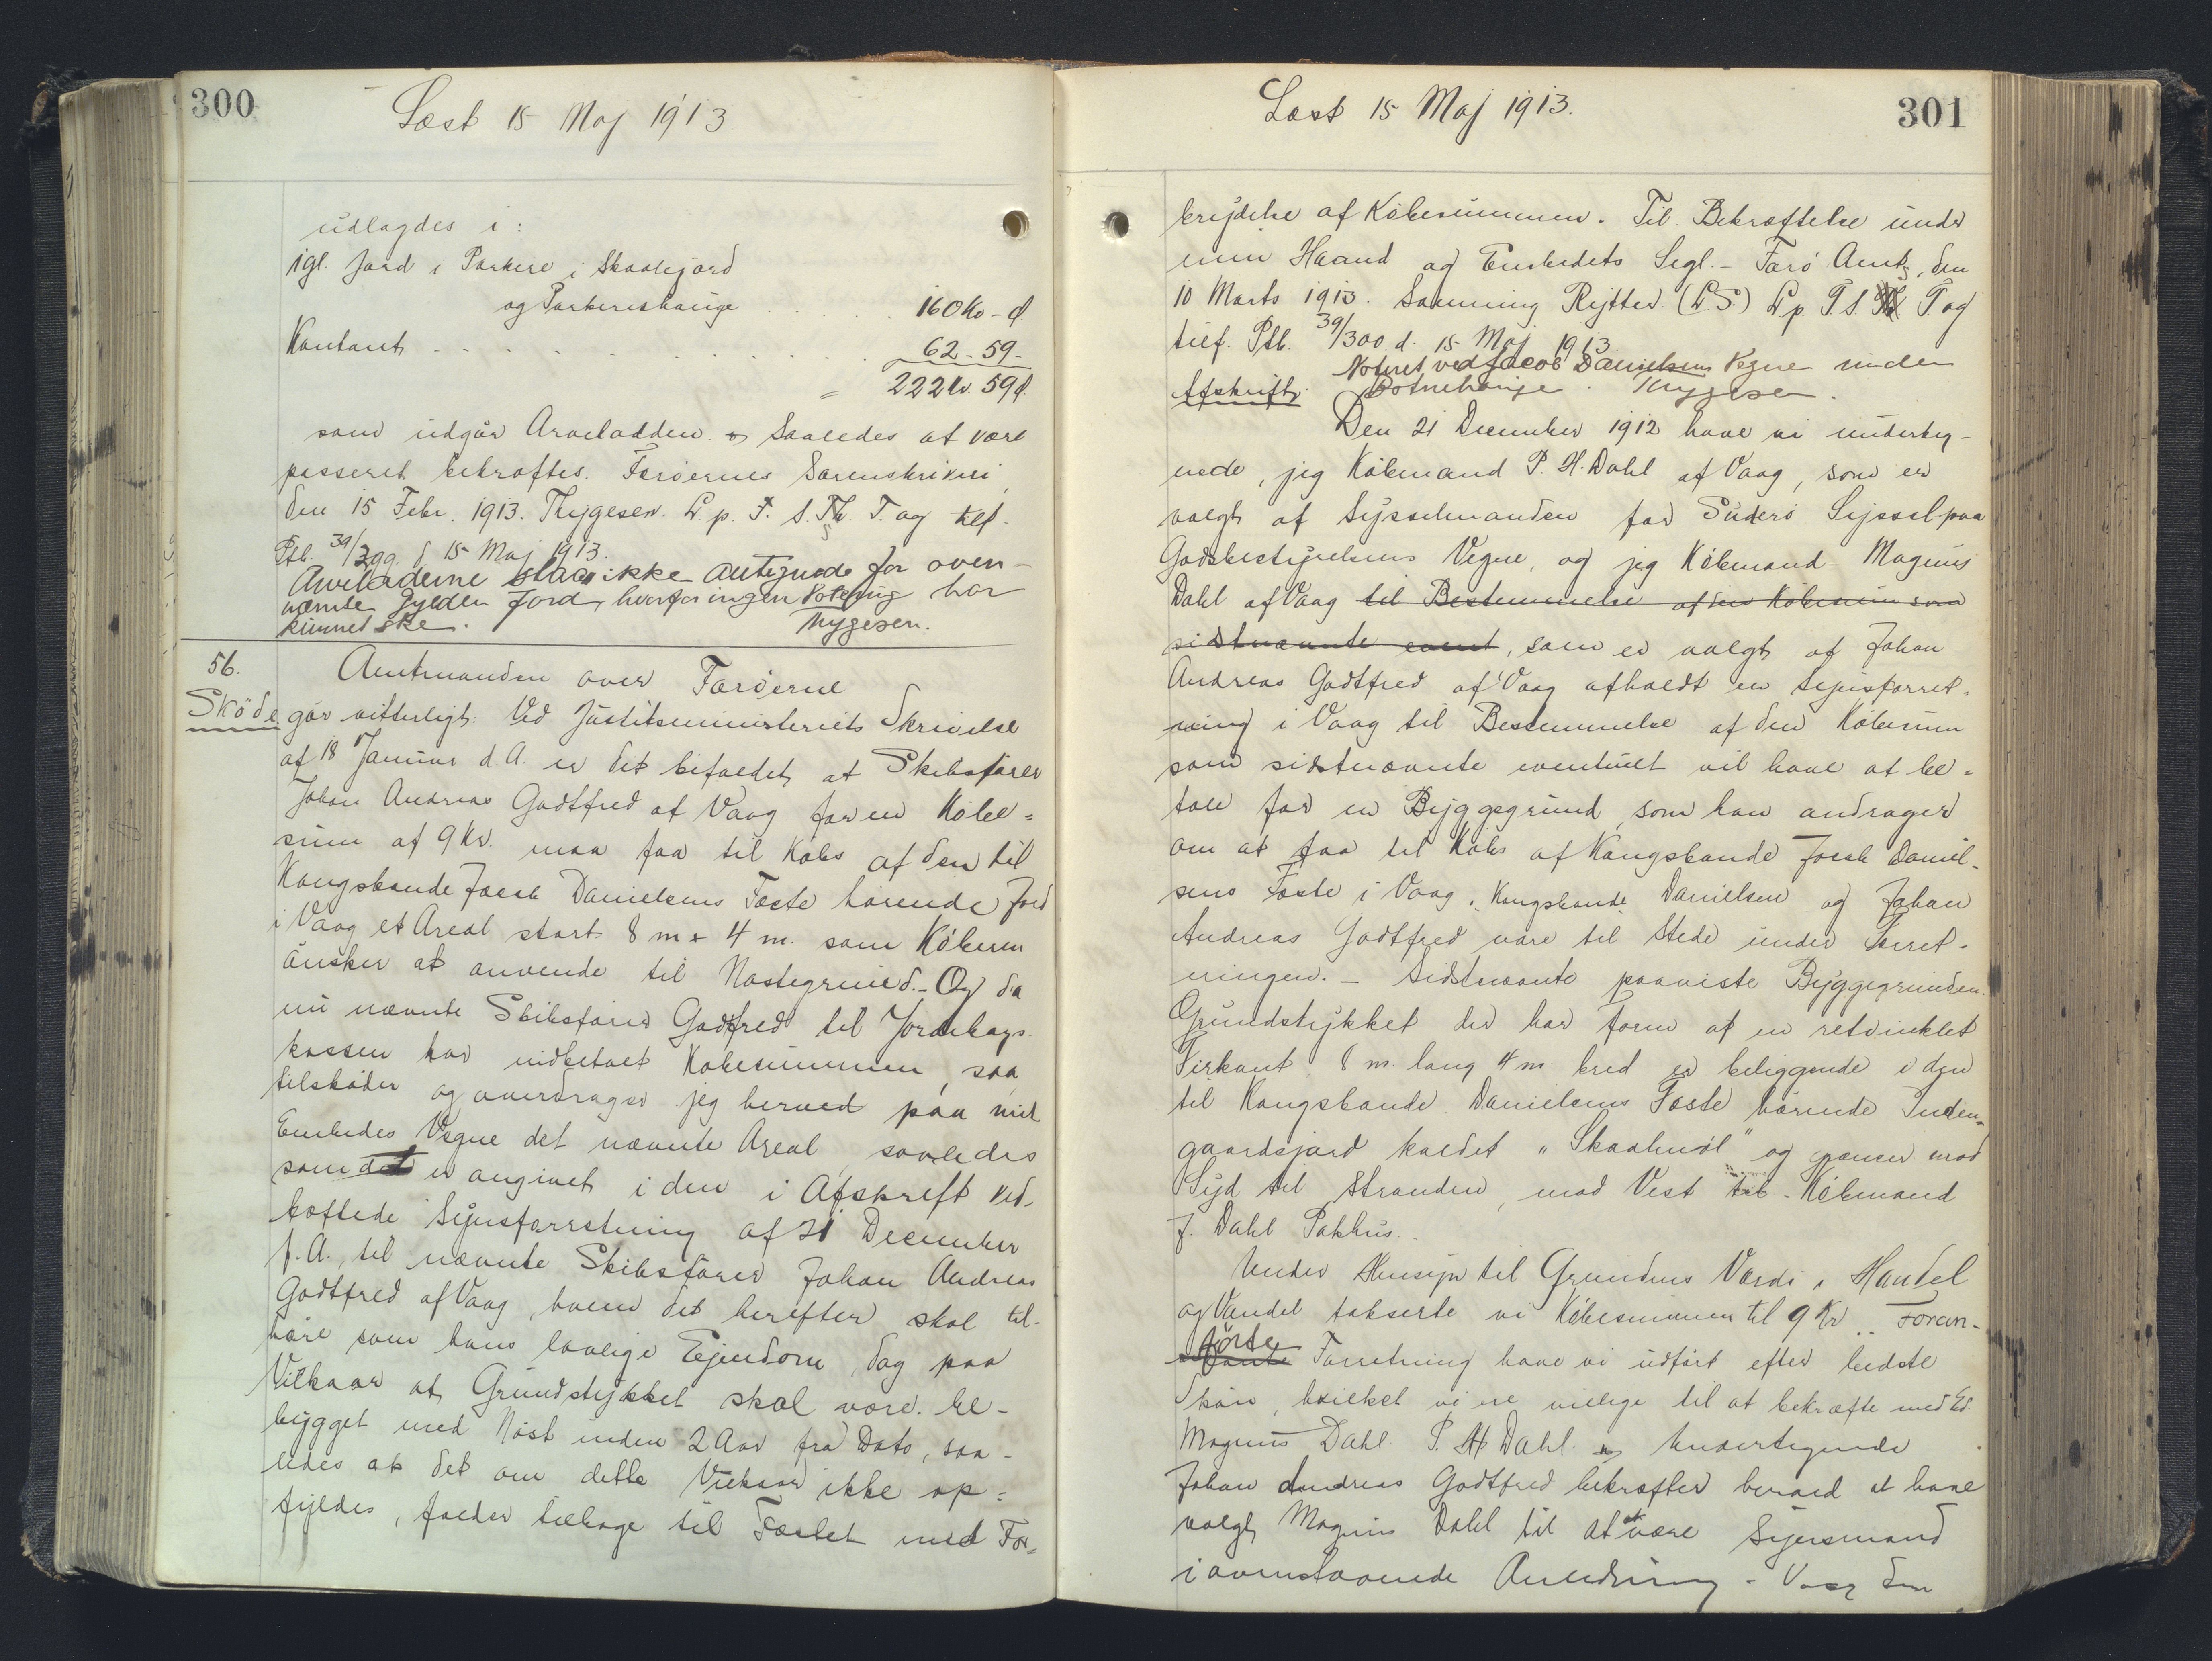 300
Læst 15 Maj 1913.
udlagdes i:
1 gl. Jord i Parkere i Skaalejord
og Parkereshauge . . . . . 160 Kr - Ø.
Kontant . . . . . . . . 62 - 59 -
= 222 Kr. 59 Ø.
som udgør Arvelodden. Saaledes at være
passeret bekræftes. Færøernes Sorenskriveri,
den 15 Febr. 1913. Thygesen. L. p. T. S. Th. T. og tilf.
Ptb. 39/299. d. 15 Maj 1913.
Arveladerne staar ikke antegnede for oven-
nævnte Gylden Jord, hvorfor ingen Notering har
kunnet ske. Thygesen.
56.
Amtmanden over Færøerne
Sköde gör vitterligt: Ved Justitsministeriets Skrivelse
af 18 Januar d. A. er det bifaldet, at Skibsfører
Johan Andreas Godtfred af Vaag for en Købe=
sum af 9 Kr. maa faa til Købs af den til
Kongsbonde Jacob Danielsens Fæste hörende Jord
i Vaag et Areal stort 8 m x 4 m. som Køberen
önsker at anvende til Nøstegrund. - Og da
nu nævnte Skibsfører Godtfred til Jordebogs-
kassen har indbetalt Købesummen, saa
tilskøder og overdrager jeg herved paa mit
Embedes Vegne det nævnte Areal, saaledes
som det er angivet i den i Afskrift ved-
hæftede Synsforretning af 21 December
f. A., til nævnte Skibsfører Johan Andreas
Godtfred af Vaag, hvem det herefter skal til-
høre som hans lovlige Ejendom, dog paa
Vilkaar at Grundstykket skal være be-
bygget med Nøst inden 2 Aar fra Dato, saa-
ledes at det om dette Vilkaar ikke op=
fyldes, falder tilbage til Fæstet med For=
Læst 15 Maj 1913.
301
brydelse af Købesummen. Til Bekræftelse under
min Haand og Embedets Segl. - Færø Amt, den
10 Marts 1913. Rytter. (L.S.) L. p. T. S. T og
tilf. Ptb. 39/300. d. 15 Maj 1913.
Noteret ved Jacob Danielsens Vegne under
Botnehauge. Thygesen.
Afskrift.
Den 21 December 1912 have vi underteg-
nede, jeg Købmand P. H. Dahl af Vaag, som er
valgt af Sysselmanden for Suderø Syssel paa
Godsbestyrelsens Vegne, og jeg Købmand Magnus
Dahl af Vaag til Bestemmelse af den Købesum som
sidstnævnte event, som er valgt af Johan
Andreas Godtfred af Vaag afholdt en Synsforret=
ning i Vaag til Bestemmelse af den Købesum
som sidstnævnte eventuelt vil have at be=
tale for en Byggegrund, som han andrager
om at faa til Købs af Kongsbonde Jacob Daniel-
sens Fæste i Vaag. Kongsbonde Danielsen og Johan
Andreas Godtfred vare til Stede under Forret-
ningen. - Sidstnævnte paaviste Byggegrunden.
Grundstykket der har Form af en retvinklet
Firkant, 8 m. lang 4 m. bred er beliggende i den
til Kongsbonde Danielsens Fæste hörende Inden-
gaardsjord kaldet "Skaalmøl" og grænser mod
Syd til Stranden, mod Vest til Købmand
J. Dahl Pakhus.
Under Hensyn til Grundens Værdi i Handel
og Vandel takserte vi Købesummen til 9 Kr. Foran-
førte
Forretning have vi udført efter bedste
Skøn, hvilket vi ere villige til at bekræfte med Ed.
Magnus Dahl. P. H. Dahl. Undertegnede
Johan Andreas Godtfred bekræfter herved at have
valgt Magnus Dahl til at være Synsmand
i ovenstaaende Anledning. - Vaag den